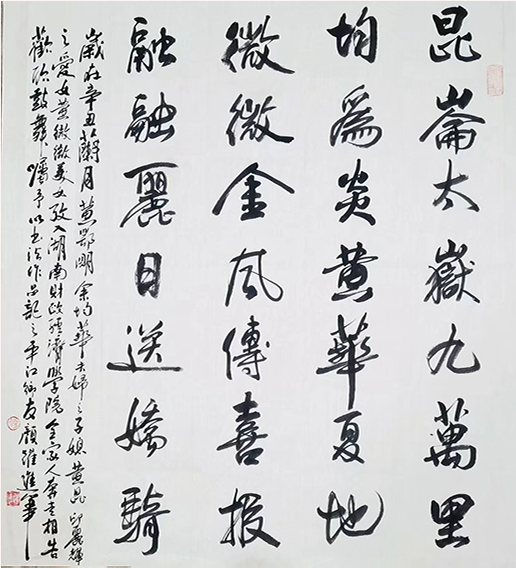 昆崙太嶽九萬里
均爲炎黄華夏地
微微金風傳喜报
融融麗日送嬌騎
歲在辛丑蘭月黄鄂明余均華夫婦之子媳黄昆印麗輝
之愛女黄微微美女攷入湖南財政經濟學院全家人奔走相告
歡欣鼓舞囑予以书法作品記之平江鄉友顧躍進筆